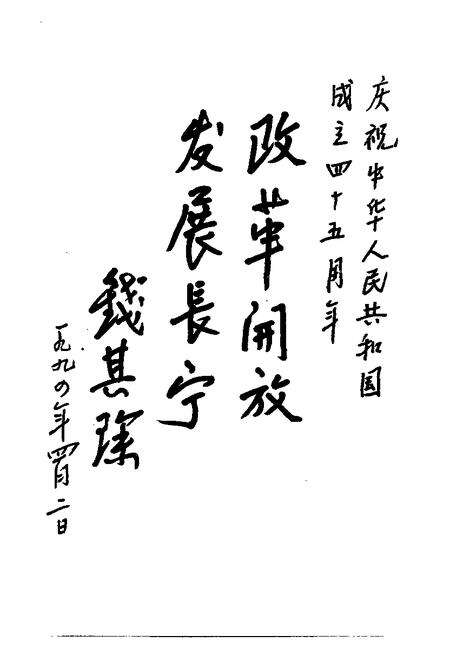 庆祝中华人民共和国
成立四十五周年
改革开放
发展長宁
錢其琛
一九九四年四月二日